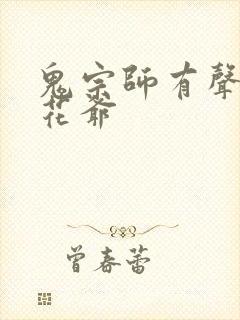 鬼宗師有聲
花爺
曾春蕾